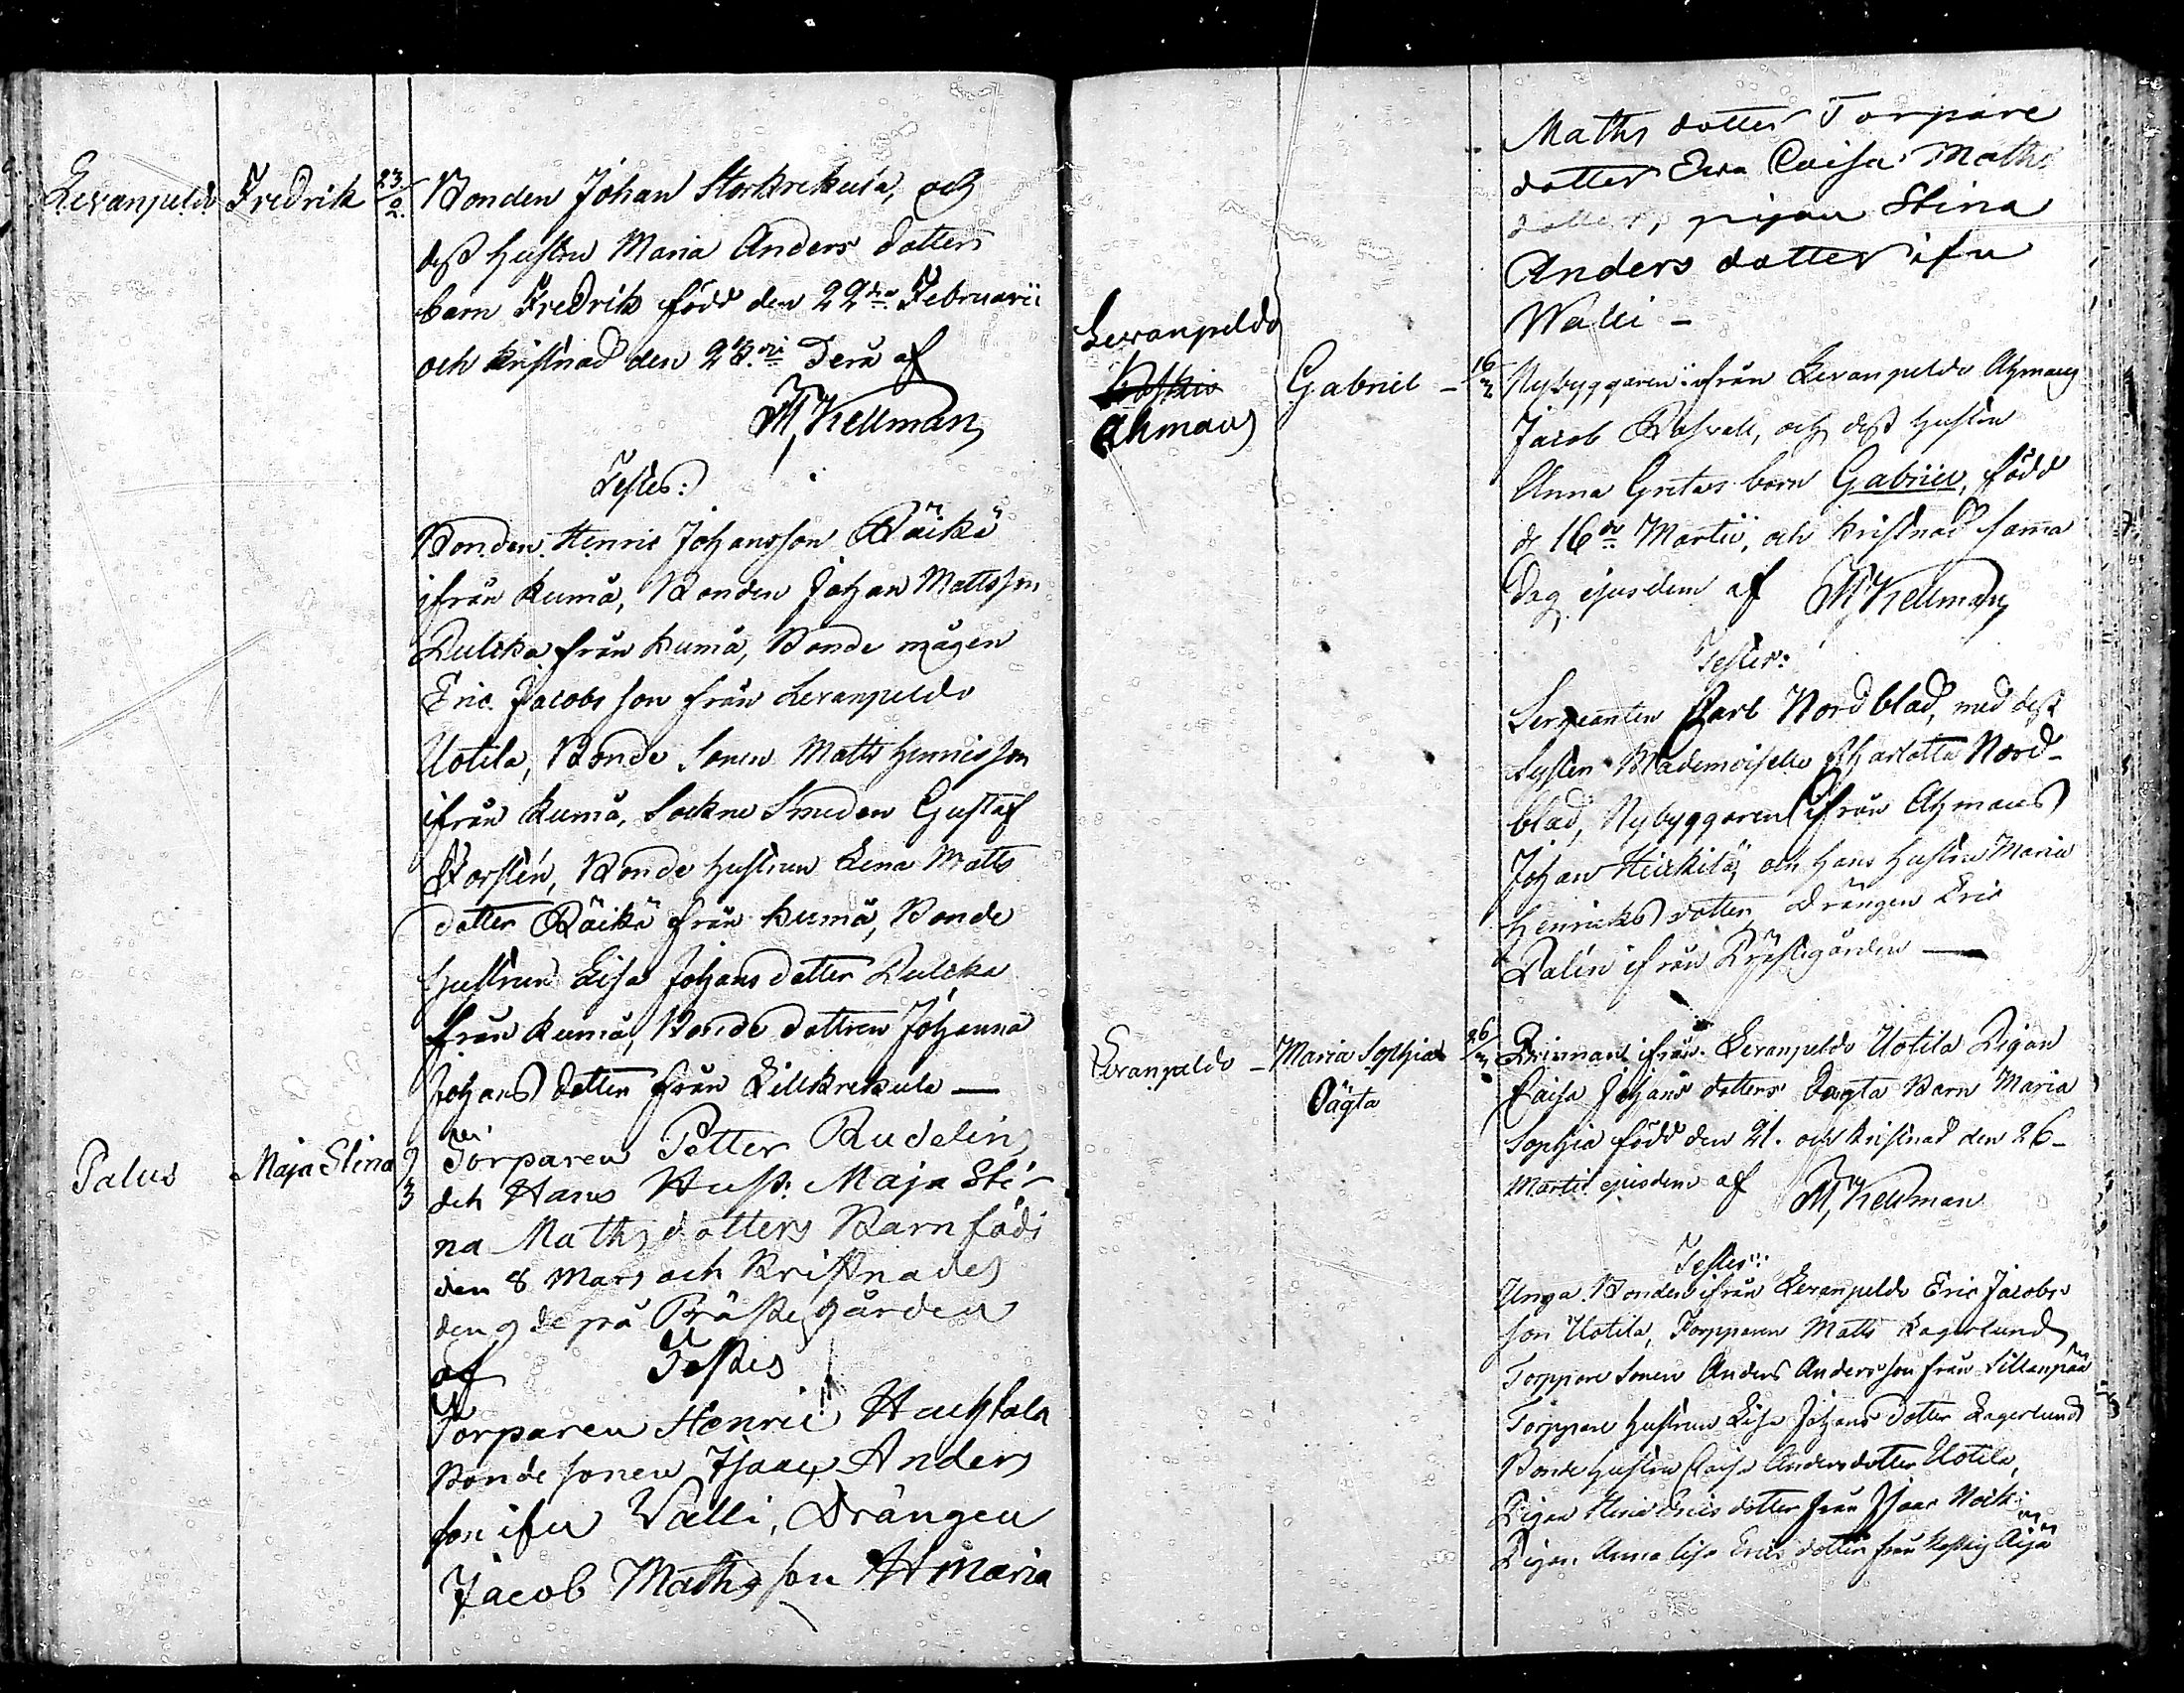 Levanpeldo Fredrik 23/2 Bonden Johan Storkrekula, och
dess hustru Maria Anders dotters
barn Fredrik född den 22dra Februarii
och kristnad den 23. af
M Kellman
Testes:
Bonden Henric Johansson Räikä
ifrån Kumå, Bonden Johan Mattsson
från Kumå, Bonde mågen
Eric Jacobs son från Levanpeldo
Uotila, Bonde Sonen Matts Henricsson
ifrån Kumå, Sockne Smeden Gustaf
Bonde hustrun Lena Matts
dotter Räikä från Kumå, Bonde
hustrun Lisa Johans dotter
från Kumå, Bonde dottren Johanna
Johans dotter från Lillkrekula —
Palus Maja Stina 9/3 Torparen Petter Rudelin
och Hans Hust: Maja Sti-
na Maths dotters Barn födt
den 8 Mars och Kristnades
den 9 de på Prästegården
af Testes
Torparen Henric
Bonde sonen Isaac Anders
son ifrn Valli, Drängen
Jacob Maths son
Maths dotter Torpare
dotter Ewa Caisa Maths
dotter, pigan Stina
Anders dotter ifrn
Walli –
Levanpeldo
Ahmaus Gabriel – 16/3 Nybyggaren ifrån Levanpeldo Ahmaus
Jacob och dess hustru
Anna Gretas barn Gabriel, född
d 16de Martii, och kristnad samma
dag ejusdem af M Kellman
Testes:
Sergeanten Carl Nordblad, med dess
Syster Mademoiselle Charlotta Nord-
blad, Nybyggaren ifrån Ahmaus
Johan Heickilä, och hans hustru Maria
Henricks dotter, Drängen Eric
Dalin ifrån Prästegården —
Levanpeldo – Maria Sophia 26/3 ifrån Levanpeldo Uotila Pigan
Oägta
Caisa Johans dotters Oägta Barn Maria
Sophia född den 21. och kristnad den 26–
Martii ejusdem af M, Kellman
Testes:
Unga Bonden ifrån Levanpeldo Eric Jacobs
son Uotila, Torpparen Matts Lagerlund
Torppare Sonen Anders Andersson från Sillanpää
Torppare hustrun Lisa Johans dotter Lagerlund
Bonde hustru Caisa Anders dotter Uotila,
Pigan Erics dotter från Isaac
Pigan Anna Lisa Erics dotter från Äijä